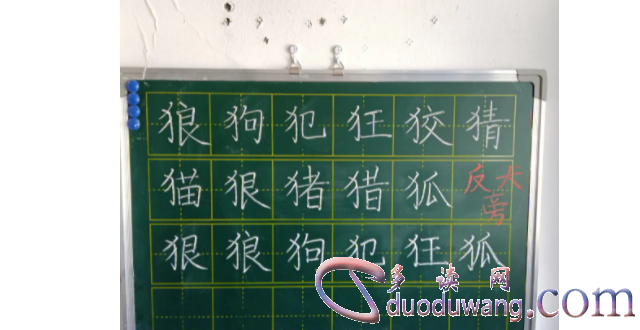 狼狗犯狂狡猜
猫狠猪猎狐反犬旁
狠狼狗犯狂狐
多读网
duoduwang.com